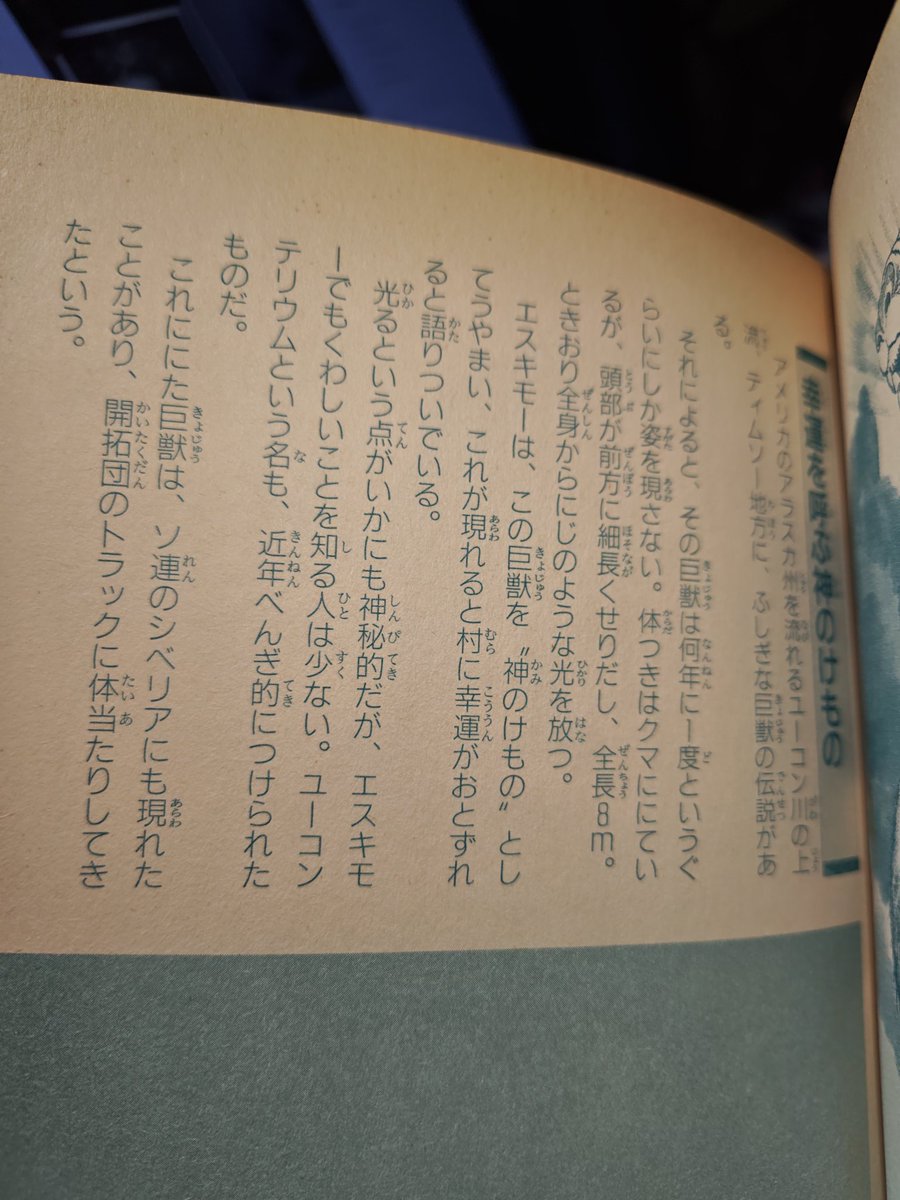 幸運を呼ぶ神のけもの
アメリカのアラスカ州を流れるユーコン川の上
流、ティムソー地方に、ふしぎな巨獣の伝説があ
る。
それによると、その巨獣は何年に一度というぐ
らいにしか姿を現さない。体つきはクマににてい
るが、頭部が前方に細長くせりだし、全長8m。
ときおり全身からにじのような光を放つ。
エスキモーは、この巨獣を〝神のけもの〟とし
てうやまい、これが現れると村に幸運がおとずれ
ると語りついでいる。
光るという点がいかにも神秘的だが、エスキモ
ーでもくわしいことを知る人は少ない。ユーコン
テリウムという名も、近年べんぎ的につけられた
ものだ。
これににた巨獣は、ソ連のシベリアにも現れた
ことがあり、開拓団のトラックに体当たりしてき
たという。